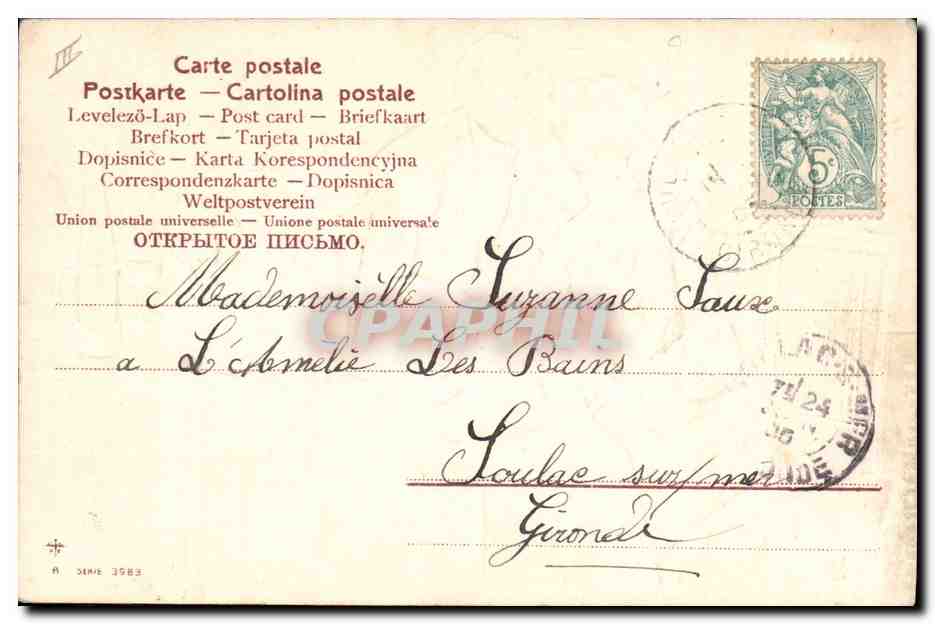 III
Carte postale
Postkarte — Cartolina postale
Levelező-Lap — Post card — Briefkaart
Brefkort — Tarjeta postal
Dopisnice — Karta Korespondencyjna
Correspondenzkarte — Dopisnica
Weltpostverein
Union postale universelle — Unione postale universale
ОТКРЫТОЕ ПИСЬМО.
5c
POSTES
Mademoiselle Suzanne Saux
a L'Amelie Les Bains
Soulac sur mer
Gironde
CPAPHIL
24
SERIE 3983